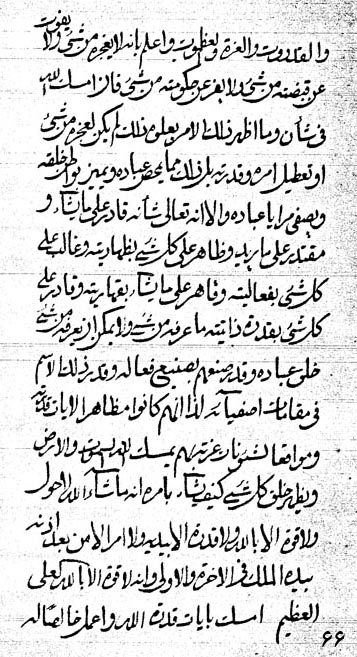 والقدروت والعزة والعظموت واعلم بانه لا يعجزه من شئ ولا يفوت
عن قبضته من شئ ولا يفر عن حكومته من شئ فان امسك الله
فى شأن وما اظهر ذلك الامر يعلى ذلك لم يكن لعجزه من شئ
او تعطيل امره وقدرته بل ذلك مما يمحص عباده ويميز بواطن خلقه
ويصفى مرايا عباده والا انه تعالى شأنه قادر على ما يشآء و
مقتدر على ما يريد وظاهر على كل شئ بظهاريته وغالب على
كل شئ بفعاليته وقاهر على ما يشآء بقهاريته وقادر على
كل شئ بقدرة ذاتيته ما عرفه من شئ ولا يمكن ان يعرفه من شئ
خلق عباده وقدر صنعهم بصنيع فعاله وقدر ذلك الاسم
فى مقامات اصفيائه لذا انهم كانوا مظاهر الايات قدرته
ومواقعا لشئونات عزته بهم يمسك السموات والارض
ويظهر خلق كل شئ كيف يشآء بامره انه ما شآء الله لا حول
ولا قوة الا بالله ولا قدرة الا بيديه ولا امر الا من بعد اذنه
بيده الملك فى الاخرة والاولى وانه لا قوة الا بالله العلى
العظيم امسك بايات قدرة الله واعمل خالصا له
۶۶